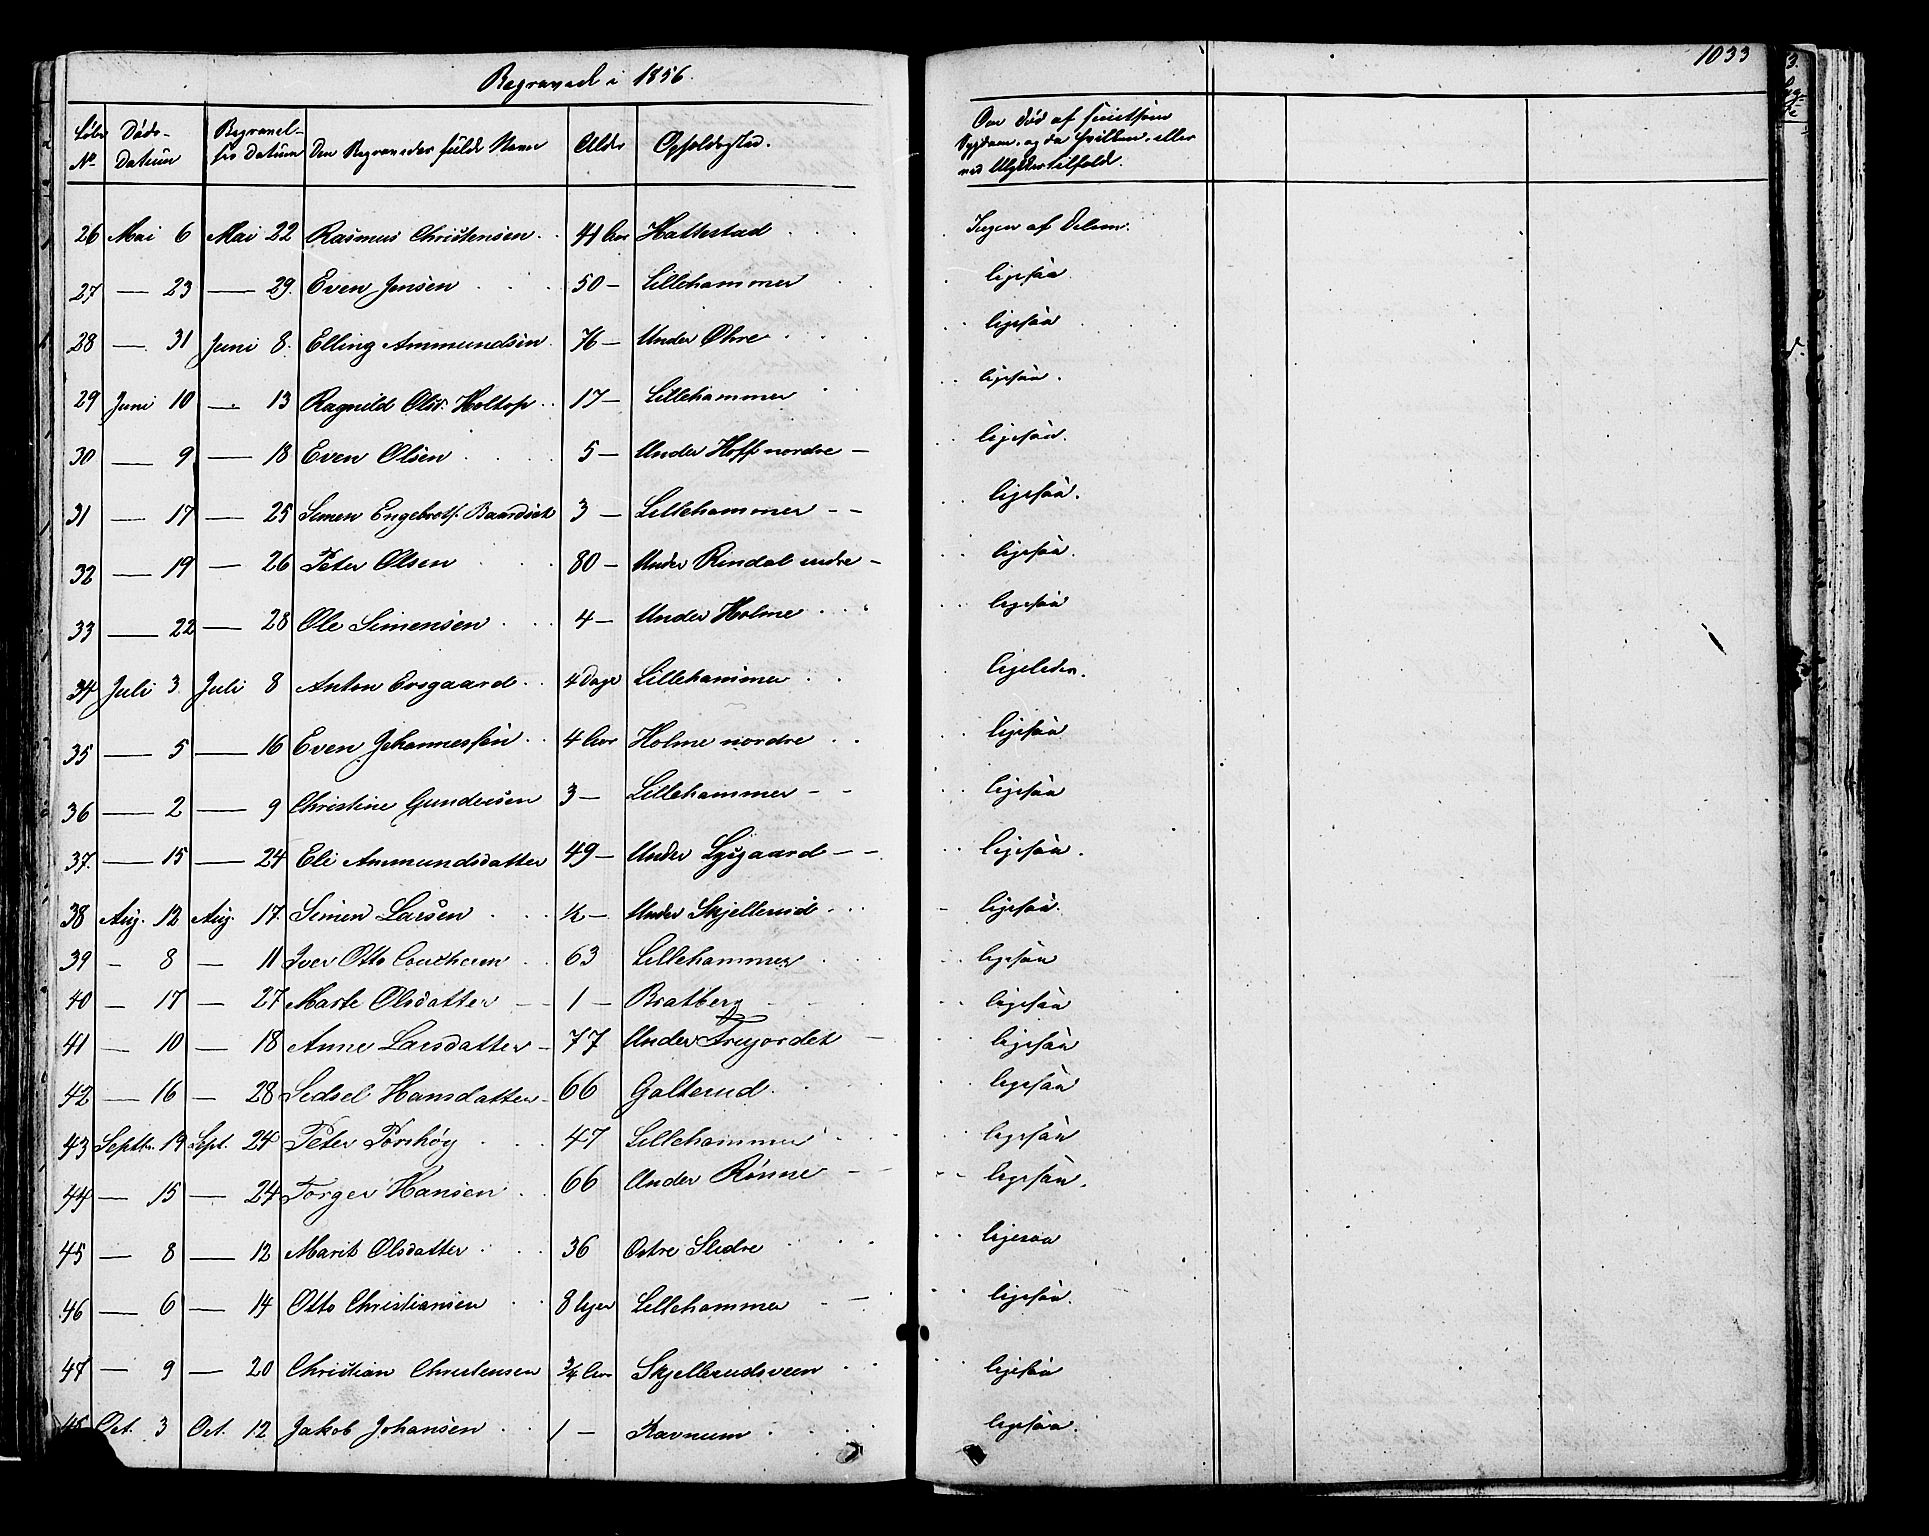 Begraved i 1856.
1033
Löbe No. Döds-Datum Begravelses Datum Den Begravedes fulde Navn Alder Opholdssted. Om död af smitsom Sygdom, og da hvilken, eller ved Ulykkestilfælde.
26 Mai 6 Mai 22 Rasmus Christensen 41 Aar Hattestad Ingen af Delene.
27 — 23 — 29. Even Jensen 50 — Lillehammer ligesaa
28 — 31 Juni 8. Elling Ammundsen 76 — Under Öhre ligesaa
29 Juni 10 — 13 Ragnild Olsd. Holtop 17 — Lillehammer ligesaa.
30 — 9 — 18 Even Olsen 5 — Under Hoff nordre — ligesaa.
31 — 17 — 25 Simen Engebrets. 3 — Lillehammer ligesaa.
32 — 19 — 26 Peter Olsen 80 — Under Rindal ligesaa.
33 — 22 — 28 Ole Simensen 4 — Under Holme ligesaa
34 Juli 3. Juli 8 Anton Ersgaard 4 Dage Lillehammer ligeledes.
35 — 5 — 16 Even Johannessen 4 Aar Holme nordre ligesaa
36 — 2 — 9 Christine Gundersen 3 — Lillehammer ligesaa
37. — 15 — 24 Eli Ammundsdatter 49 — Under Lysgaard ligesaa.
38 Aug. 12 Aug. 17. Simen Larsen ½ — Under Skjellerud ligesaa.
39 — 8 — 11 Iver Otto 63 Lillehammer ligesaa
40 — 17 — 27 Marte Olsdatter 1 — Bratberg ligesaa
41 — 10 — 18 Anne Larsdatter 77 Under ligesaa
42 — 16 — 28 Sidsel Hansdatter 66 Galterud ligesaa
43 Septbr. 19 Sept. 24 Peter Forshöy 47 Lillehammer ligesaa
44 — 15 — 24 Torger Hansen 66 Under Rönne ligesaa.
45 — 8 — 12 Marit Olsdatter 36 Östre Slidre ligesaa
46 — 6 — 14 Otto Christiansen 8 Uger Lillehammer ligesaa.
47 — 9 — 20 Christian Christensen ¾ Aar Skjellerudsveen ligesaa
48 Oct. 3 Oct. 12 Jakob Johansen 1 — Ravnum ligesaa.